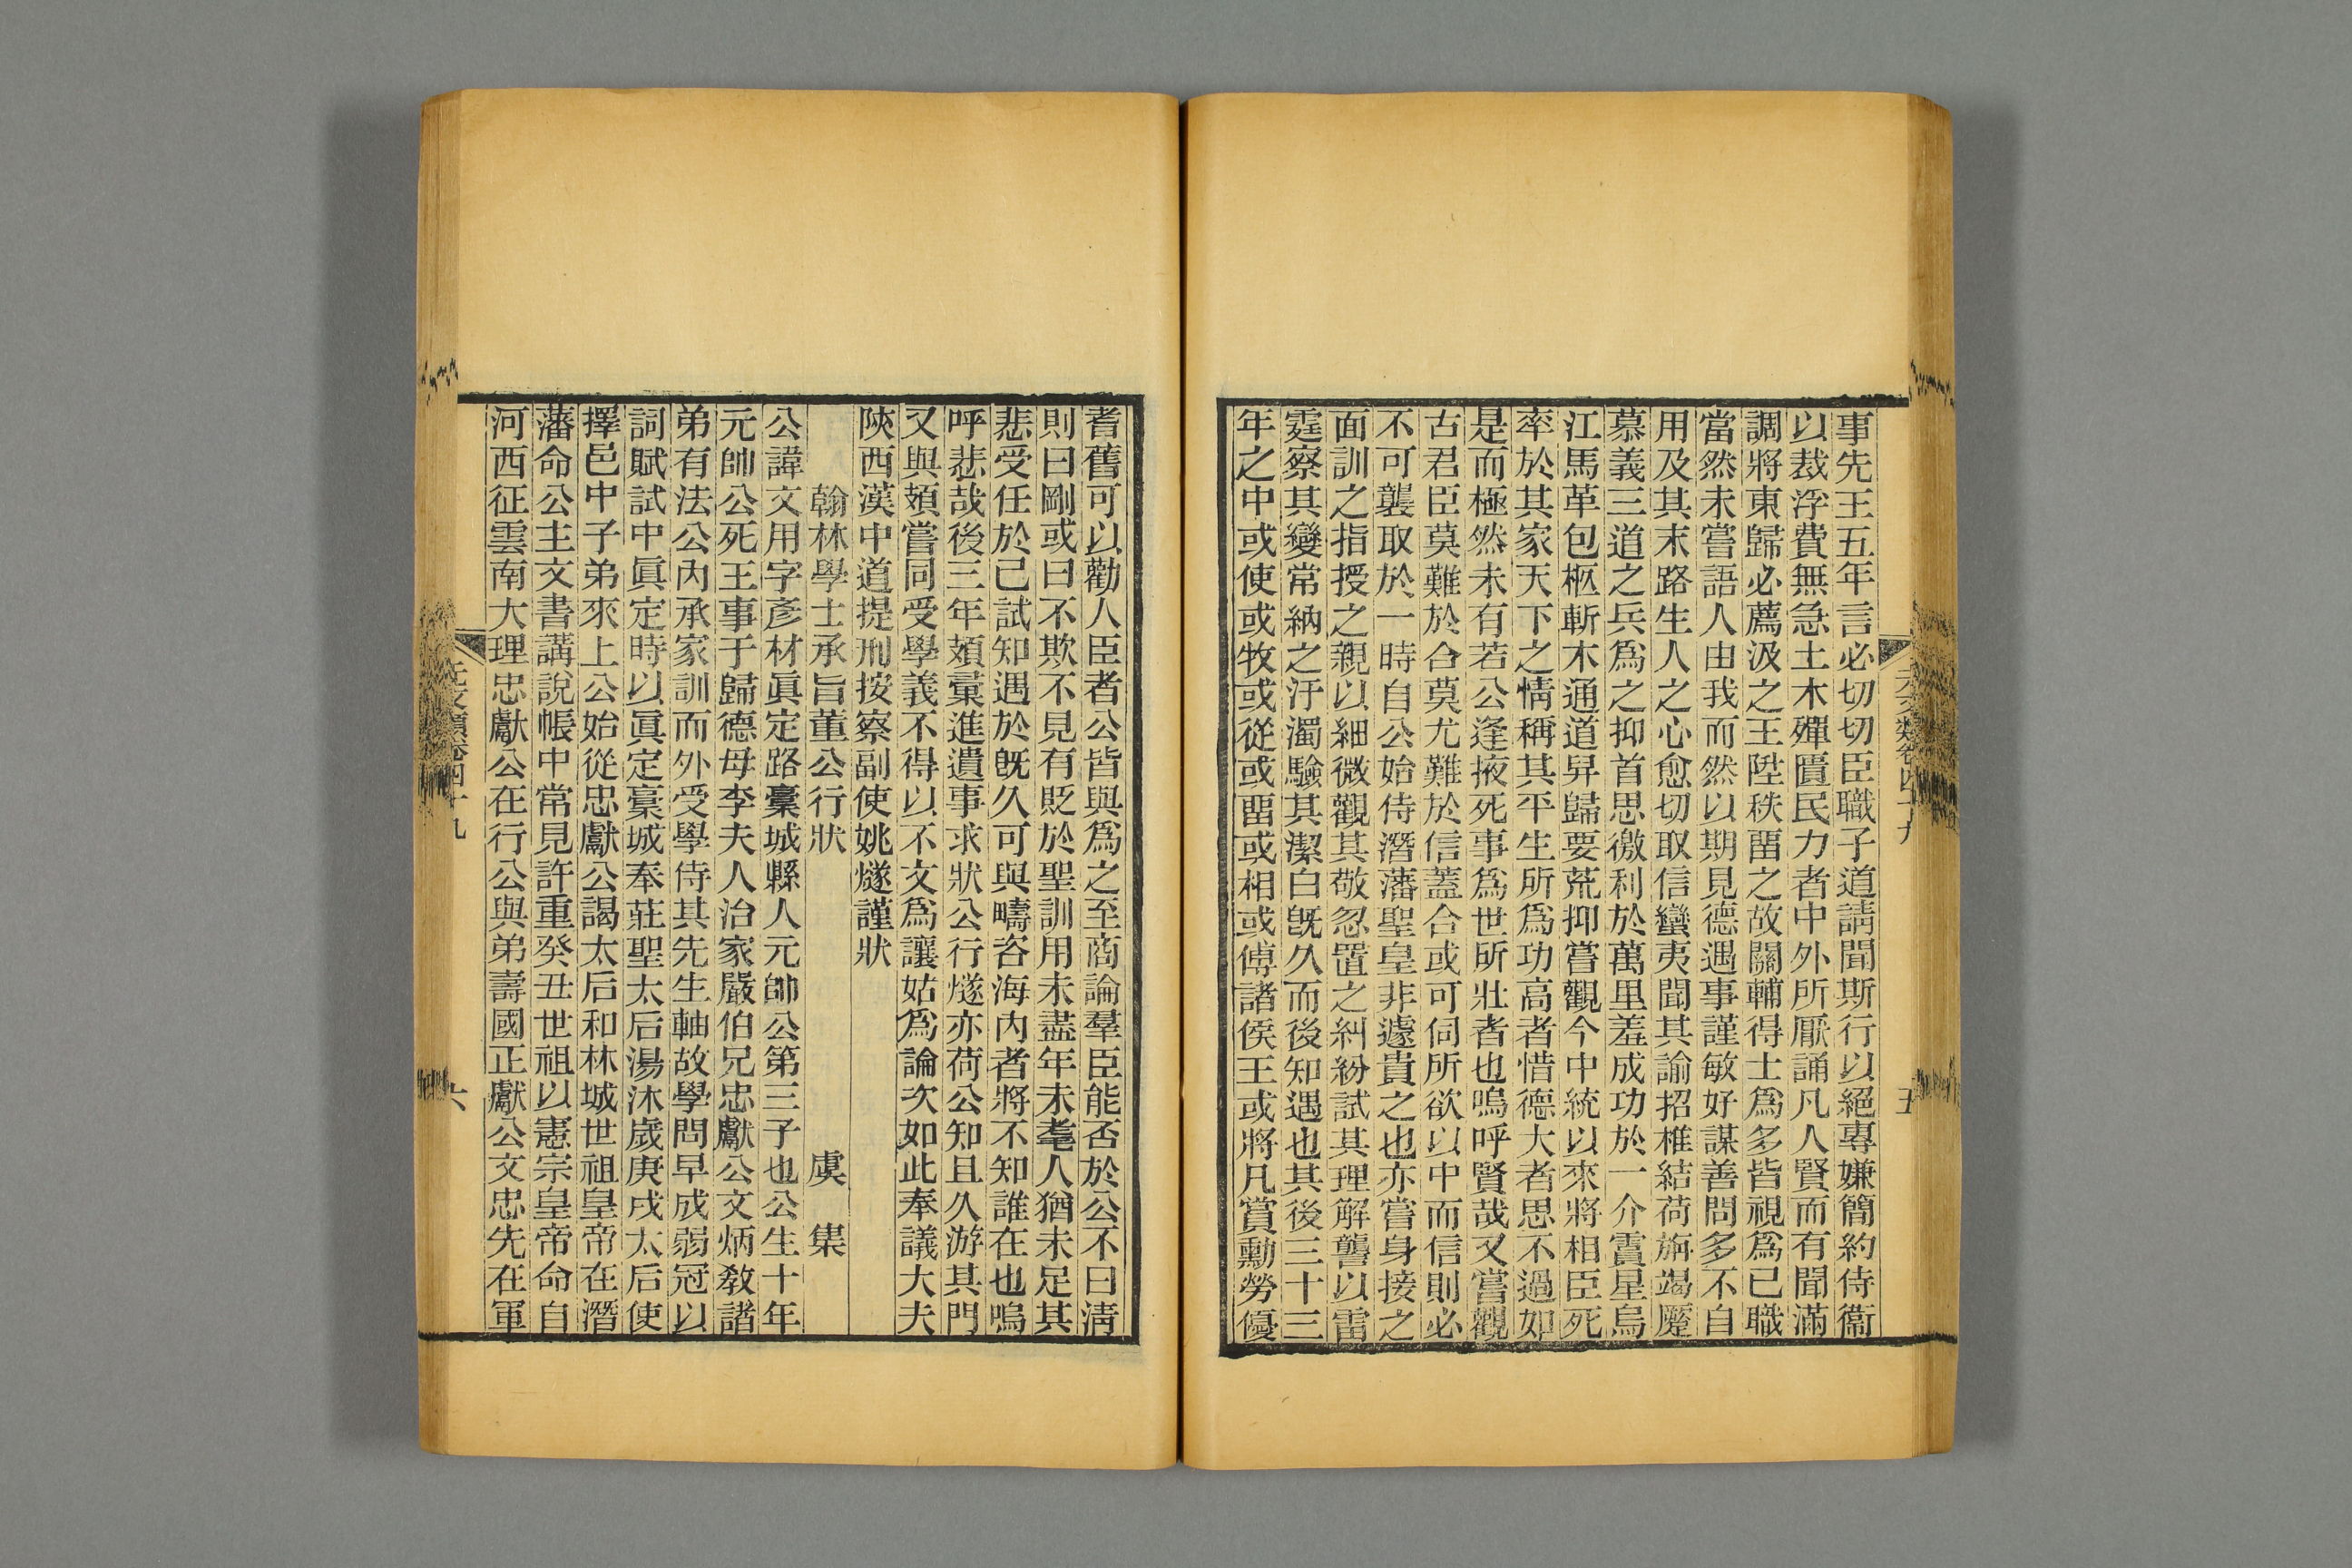 事先王五年言必切切臣職子道請聞斯行以絕專嫌簡約侍衞
以裁浮費無急土木殫匱民力者中外所厭誦凡人賢而有聞滿
調將東歸必薦汲之王陞秩畱之故關輔得士爲多皆視爲已職
當然未嘗語人由我而然以期見德遇事謹敏好謀善問多不自
用及其末路生人之心愈切取信蠻夷聞其諭招椎結荷旃竭蹷
慕義三道之兵爲之抑首思徼利於萬里羞成功於一介霣星烏
江馬革包柩斬木通道舁歸要荒抑嘗觀今中統以來將相臣死
率於其家天下之情稱其平生所爲功高者惜德大者思不過如
是而極然未有若公逢掖死事爲世所壯者也嗚呼賢哉又嘗觀
古君臣莫難於合莫尤難於信蓋合或可伺所欲以中而信則必
不可襲取於一時自公始侍潛藩聖皇非遽貴之也亦嘗身接之
面訓之指授之親以細微觀其敬忽置之糾紛試其理解讋以雷
霆察其變常納之汙濁驗其潔白旣久而後知遇也其後三十三
年之中或使或牧或從或畱或相或傅諸侯王或將凡賞勳勞優
元文類卷四十九
五
耆舊可以勸人臣者公皆與爲之至商論羣臣能否於公不曰淸
則曰剛或曰不欺不見有貶於聖訓用未盡年未耄人猶未足其
悲受任於己試知遇於旣久可與疇咨海內者將不知誰在也嗚
呼悲哉後三年頫彙進遺事求狀公行燧亦荷公知且久游其門
又與頫嘗同受學義不得以不文爲讓姑爲論次如此奉議大夫
陝西漢中道提刑按察副使姚燧謹狀
翰林學士承旨董公行狀 虞集
公諱文用字彥材眞定路藁城縣人元帥公第三子也公生十年
元帥公死王事于歸德母李夫人治家嚴伯兄忠獻公文炳敎諸
弟有法公內承家訓而外受學侍其先生軸故學問早成弱冠以
詞賦試中眞定時以眞定藁城奉莊聖太后湯沐歲庚戌太后使
擇邑中子弟來上公始從忠獻公謁太后和林城世祖皇帝在潛
藩命公主文書講說帳中常見許重癸丑世祖以憲宗皇帝命自
河西征雲南大理忠獻公在行公與弟壽國正獻公文忠先在軍
元文類卷四十九
六